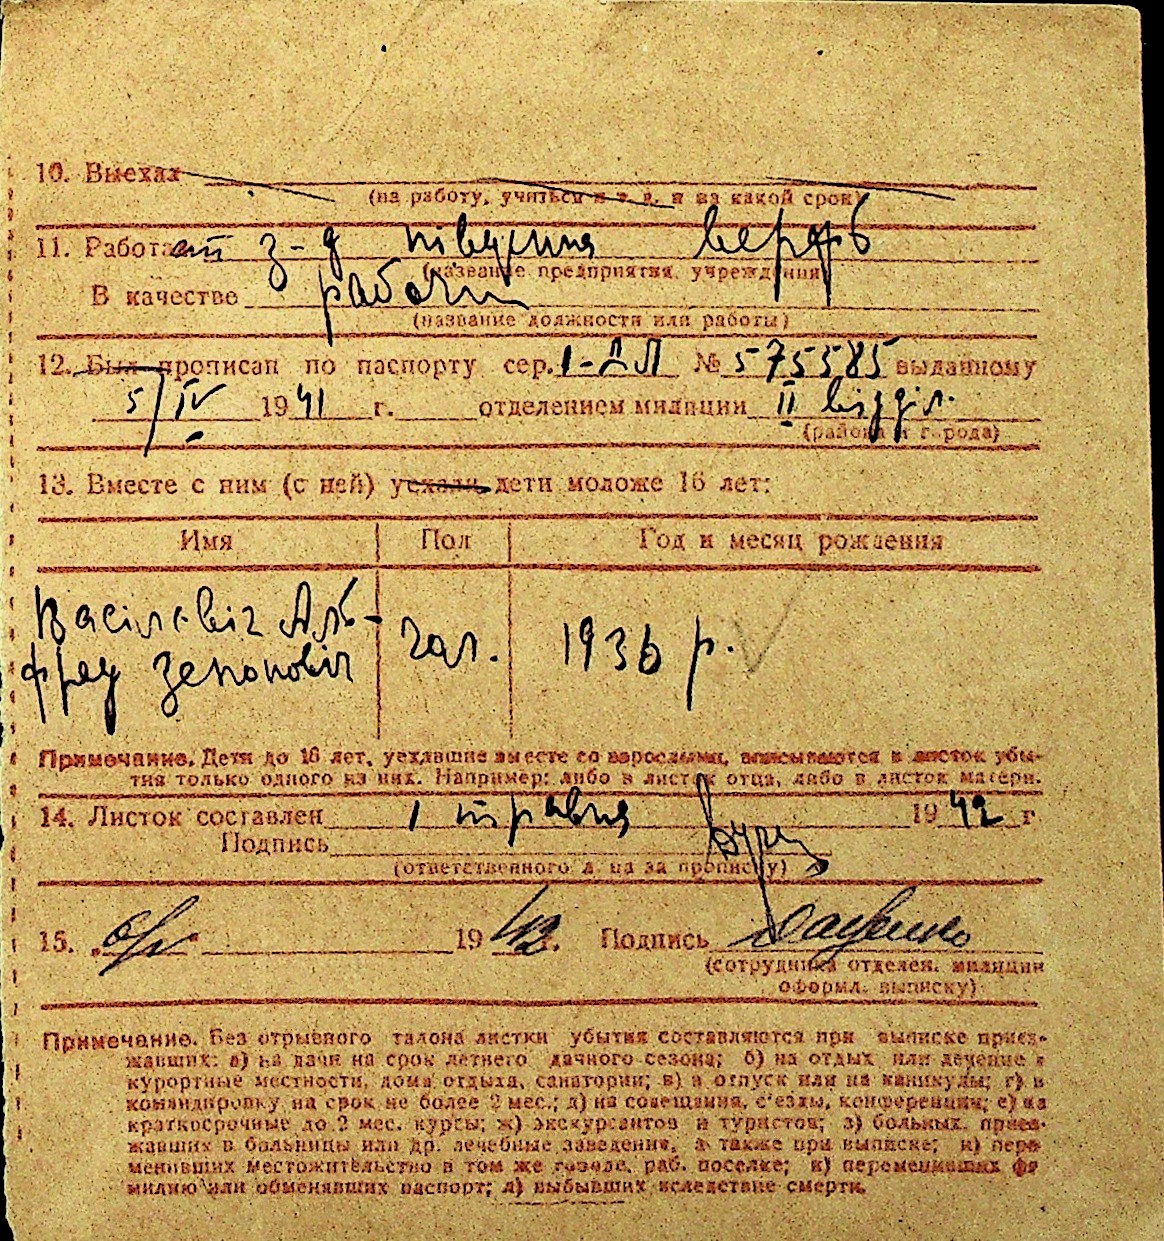 10. Выехал
(на работу, учиться и т. д. и на какой срок)
11. Работает з-д південна верфь
(название предприятия, учреждения)
В качестве рабочий
(название должности или работы)
12. Был прописан по паспорту сер. І-ДЛ № 575585 выданному
5/IV 1941 г. отделением милиции II відділ.
(района и города)
13. Вместе с ним (с ней) уехали дети моложе 16 лет:
Имя Пол Год и месяц рождения
Васілевіч Аль-
фред Зенонович чол. 1936 р.
Примечание. Дети до 16 лет, уехавшие вместе со взрослыми, вписываются в листок убы-
тия только одного из них. Например: либо в листок отца, либо в листок матери.
14. Листок составлен 1 травня 1942 г
Подпись
(ответственного лица за прописку)
15. 1942. Подпись
(сотрудника отделен. милиции
оформл. выписку)
Примечание. Без отрывного талона листки убытия составляются при выписке приез-
жавших: а) на дачи на срок летнего дачного сезона; б) на отдых или лечение в
курортные местности, дома отдыха, санатории; в) в отпуск или на каникулы; г) в
командировку на срок не более 2 мес.; д) на совещания, с'езды, конференции; е) на
краткосрочные до 2 мес. курсы; ж) экскурсантов и туристов; з) больных, приез-
жавших в больницы или др. лечебные заведения, а также при выписке; и) пере
менивших местожительство в том же городе, раб. поселке; к) переменивших фа
милию или обменявших паспорт; л) выбывших вследствие смерти.